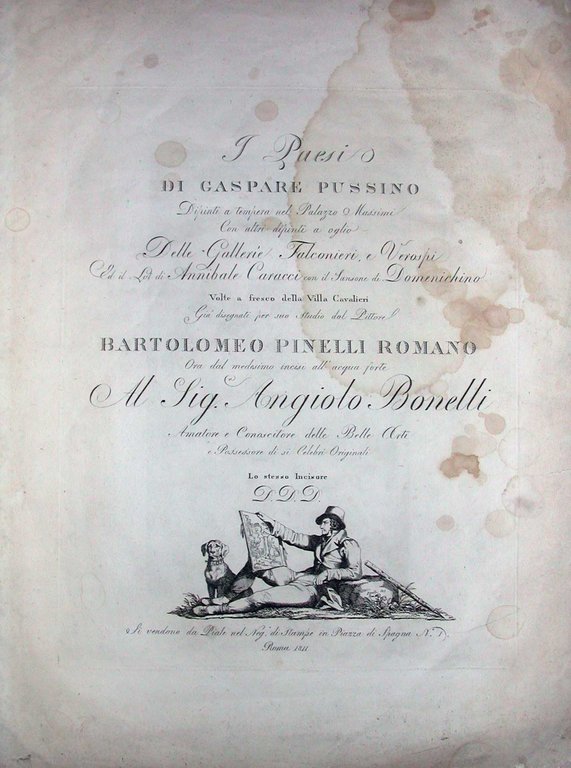 I Paesi
DI GASPARE PUSSINO
Dipinti a tempera nel Palazzo Massimi
Con altri dipinti a oglio
Delle Gallerie Falconieri, e Verospi
Ed il Lot di Annibale Caracci con il Sansone di Domenichino
Volte a fresco della Villa Cavalieri
Già disegnate per suo Studio dal Pittore
BARTOLOMEO PINELLI ROMANO
Ora dal medesimo incise all' acqua forte
Al Sig. Angiolo Bonelli
Amatore e Conoscitore delle Belle Arti
e Possessore di si Celebri Originali
Lo stesso Incisore
D. D. D.
Si vendono da Piale nel Neg. di Stampe in Piazza di Spagna N. 1.
Roma 1811